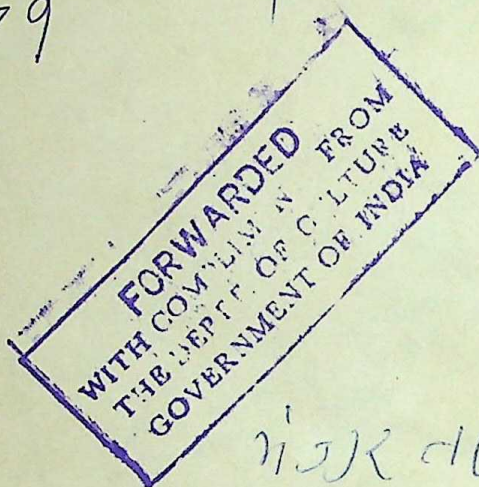 FORWARDED
WITH COMPLIMENTS FROM
THE DEPTT. OF CULTURE
GOVERNMENT OF INDIA